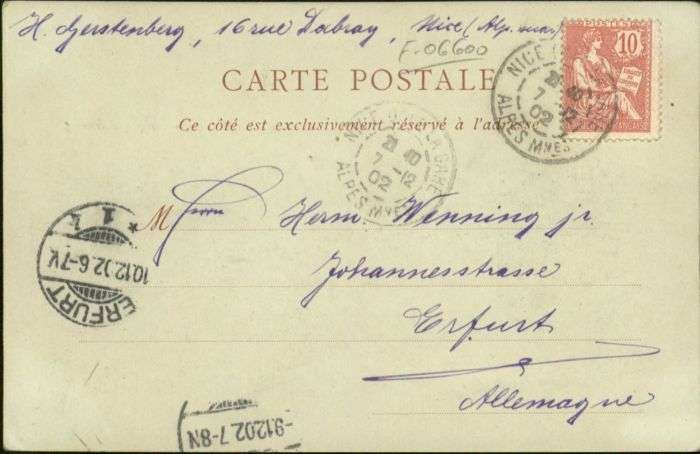 H. Gerstenberg, 16 rue Dabray, Nice (Alp. mar.)
F. 06600
10
CARTE POSTALE
Ce côté est exclusivement réservé à l'adresse
NICE
7 12
02
ALPES MMES
LA GARE
7 12
02
ALPES MMES
M
Herrn Wenning jr.
Johannesstrasse
Erfurt
Allemagne
* 1 k
10.12.02.6-7V.
ERFURT
-9.12.02.7-8N